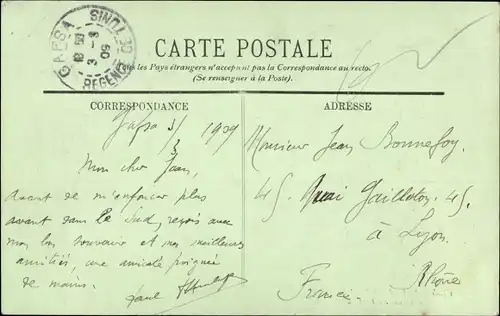 GAFSA
REGENCE DE TUNIS
3 - 3
09
CARTE POSTALE
Tous les Pays étrangers n'acceptent pas la Correspondance au recto.
(Se renseigner à la Poste).
CORRESPONDANCE
ADRESSE
Gafsa 3/3 1909
Mon cher Jean,
avant de m'enfoncer plus
avant dans le Sud, reçois avec
mon bon souvenir et mes meilleures
amitiés, une amicale poignée
de mains.
Paul
Monsieur Jean Bonnefoy.
45 Quai Gailleton. 45.
à Lyon.
Rhône
France